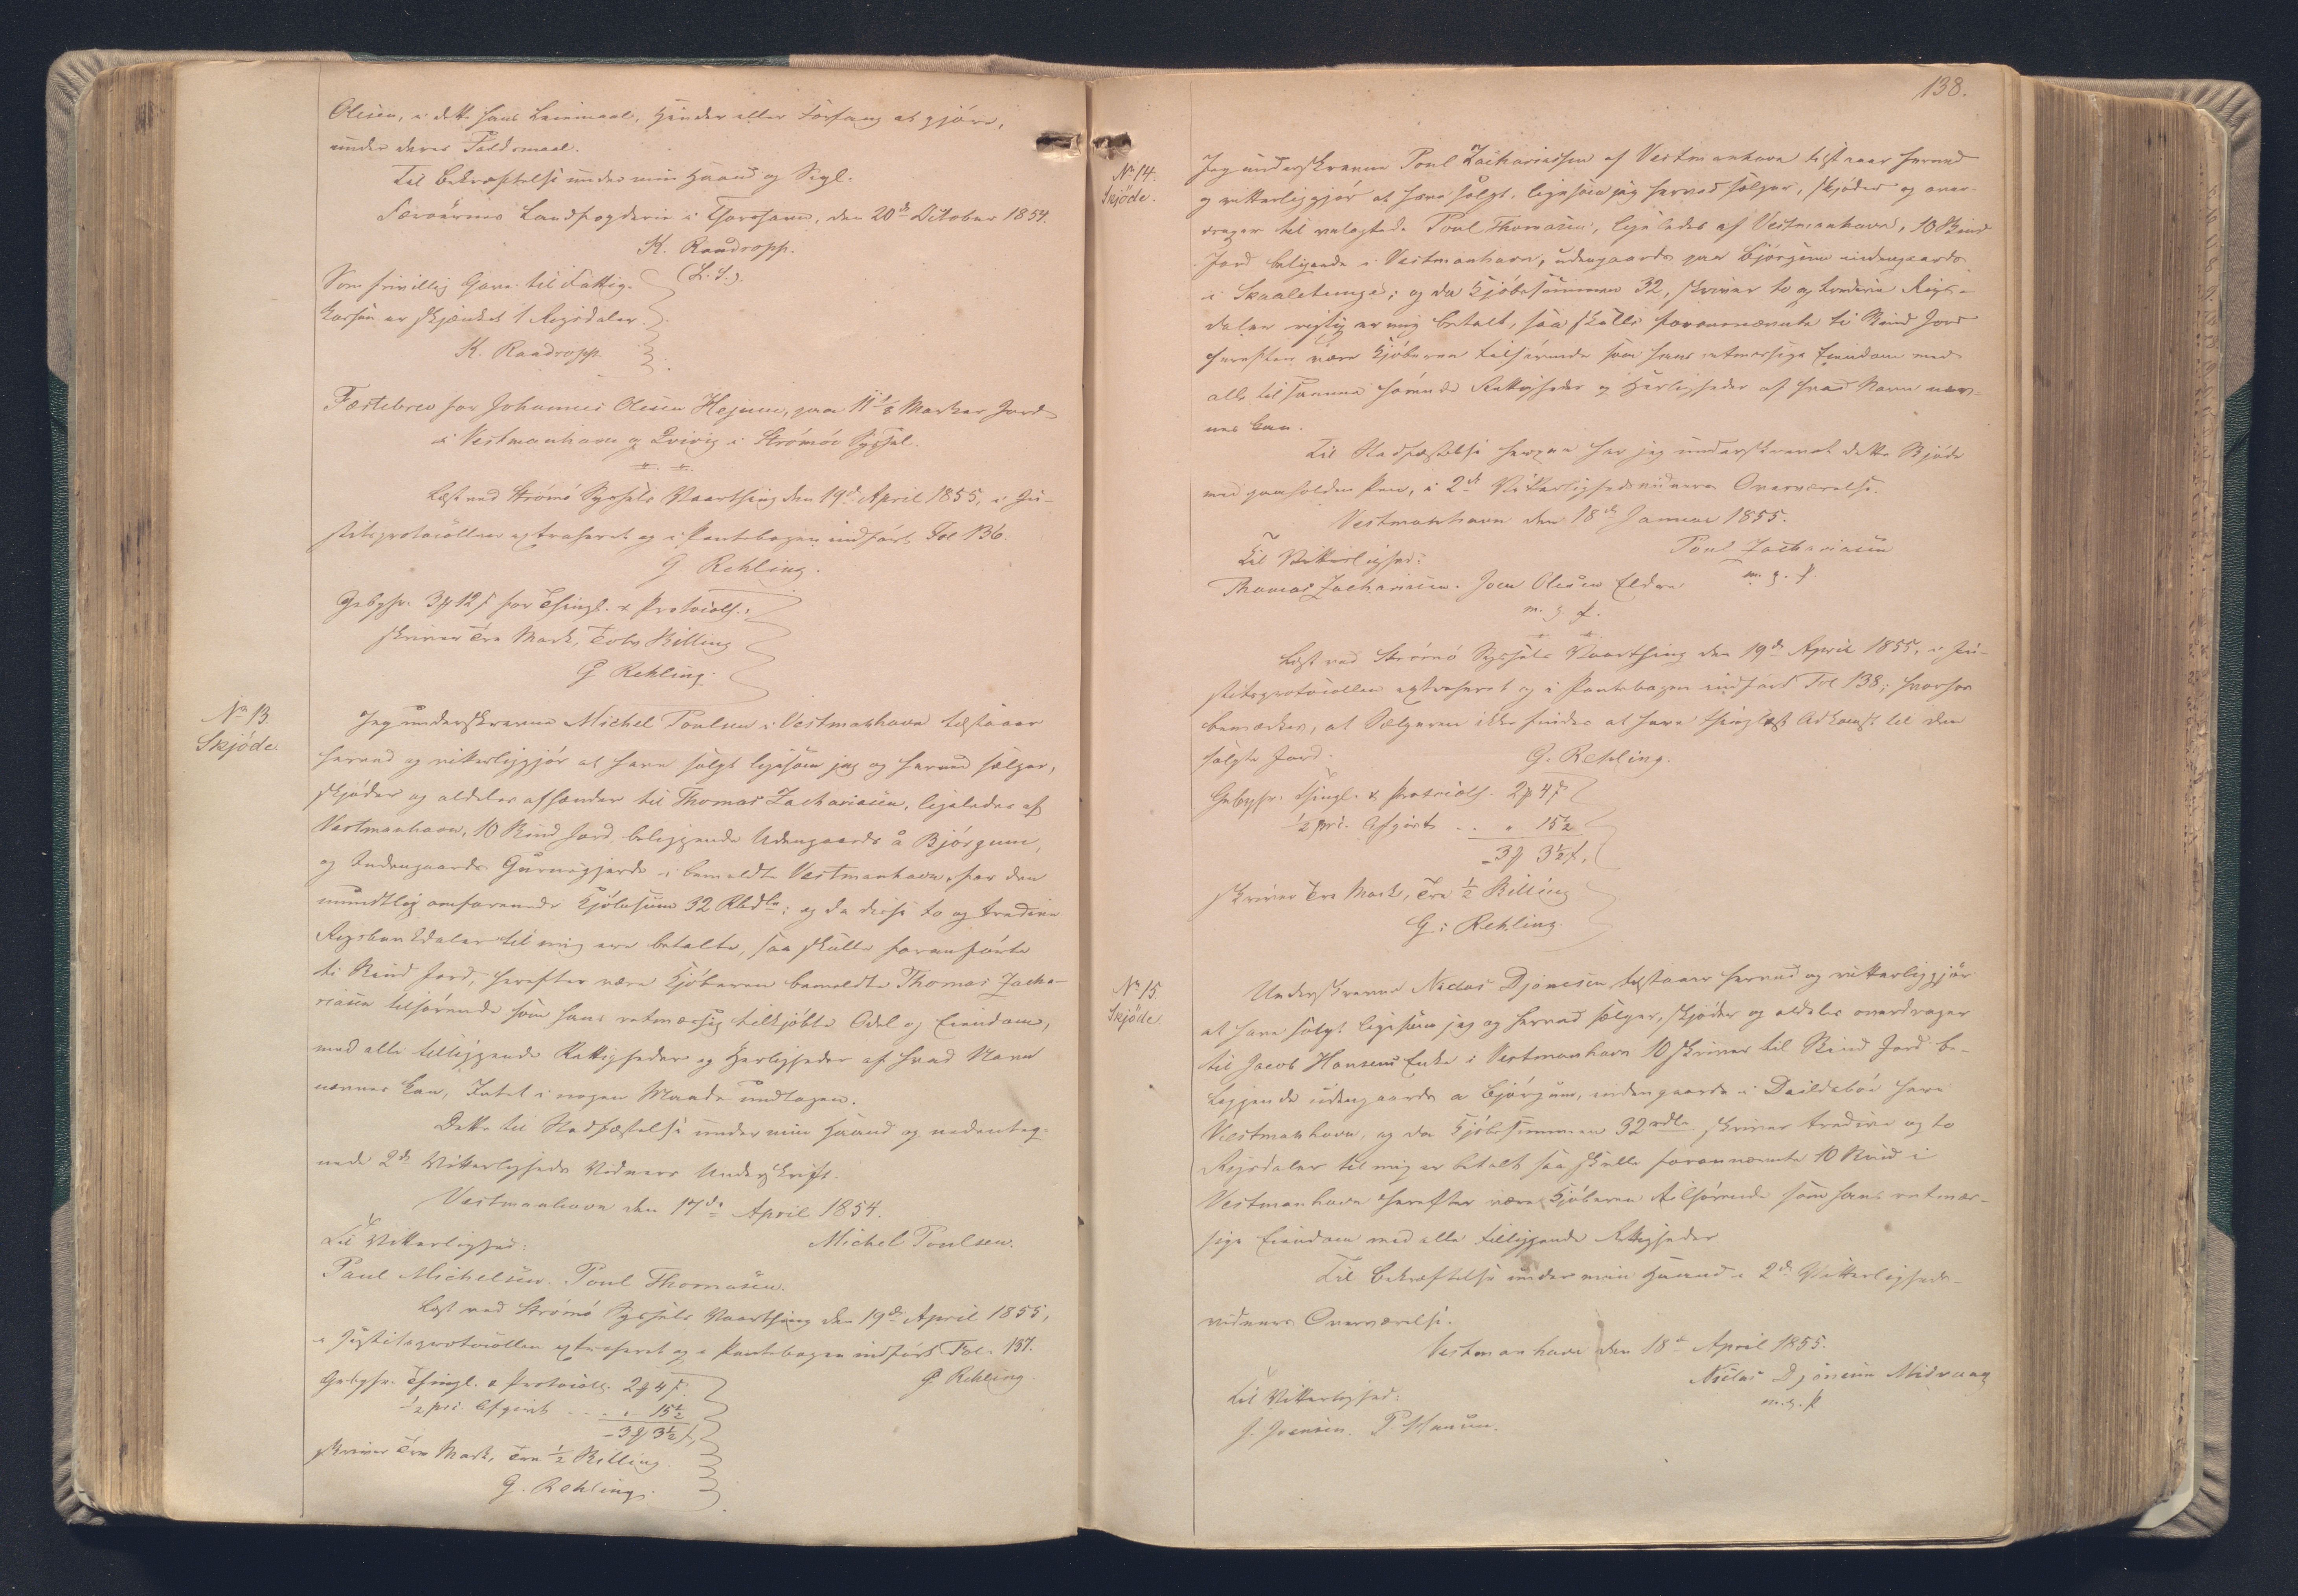 Olesen, i dette hans Leiemaal, Hinder eller Forfang at gjöre,
under deres Faldsmaal.
Til Bekræftelse under min Haand og Segl.
Færöernes Landfogderie i Thorshavn, den 20de October 1854.
H. Raadropp.
(L. S.)
Som frivillig Gave til Fattig-
kassen er skjænket 1 Rigsdaler.
H. Raadropp.
Fæstebrev for Johannes Olesen Hejgum, paa 11 1/8 Marker Jord
i Vestmanhavn og Qvivig i Strömöe Syssel.
Læst ved Strömö Syssels Vaarthing den 19de April 1855, i Ju-
stitsprotocollen extraheret og i Pantebogen indfört Fol 136.
G Rehling.
Gebyhr. 3 # 12 ß for Thingl. & Protocoll.
skriver Tre Mark, Tolv Skilling
G Rehling.
No 13.
Skjöde
Jeg underskrevne Michel Poulsen i Vestmanhavn tilstaaer
herved og vitterliggjör at have solgt ligesom jeg og herved sælger,
skjöder og aldeles afhænder til Thomas Zachariasen, ligeledes af
Vestmanhavn, 10 Skind Jord, beliggende Udengaards å Bjórgum,
og Indengaards i bemeldte Vestmanhavn, for den
mundtlig omforenede Kjöbesum 32 Rbdlr; og da disse to og tredive
Rigsbankdaler til mig ere betalte, saa skulle foranförte
ti Skind Jord, herefter være Kjöberen bemeldte Thomas Zacha-
riasen tilhörende som hans retmæssig tilkjöbte Odel og Eiendom,
med alle tilliggende Rettigheder og Herligheder af hvad Navn
nævnes kan, Intet i nogen Maade undtagen.
Dette til Stadfæstelse under min Haand og nedenteg-
nede 2de Vitterligheds Vidners Underskrift.
Vestmanhavn den 17de April 1854.
Til Vitterlighed:
Michel Poulsen.
Paul Michelsen. Poul Thomasen.
Læst ved Strömö Syssels Vaarthing den 19de April 1855,
i Justitsprotocollen extraheret og i Pantebogen indfört Fol. 137.
G. Rehling
Gebyhr. Thingl. & Protocoll. 2 # 4 ß
1/2 pCt. Afgivt . . . " 15 1/2
- 3 # 3 1/2 ß,
skriver Tre Mark, Tre 1/2 Skilling.
G. Rehling.
138.
No 14.
Skjöde.
Jeg underskrevne Poul Zachariasen af Vestmanhavn tilstaaer herved
og vitterliggjör at have solgt, ligesom jeg herved sælger, skjöder og over-
drager til velagtede Poul Thomasen, ligeledes af Vestmanhavn, 10 Skind
Jord beliggende i Vestmanhavn, udengaards paa Bjórgum indengaards
i Skaaletunge; og da Kjöbesummen 32, skriver to og tredive Rigs-
daler rigtig er mig betalt, saa skulle forannævnte ti Skind Jord
herefter være Kjöberen tilhörende som hans retmæssige Eiendom med
alle til samme hörende Rettigheder og Herligheder af hvad Navn næv-
nes kan.
Til Stadfæstelse herpaa har jeg underskrevet dette Skjöde
med paaholden Pen, i 2de Vitterlighedsvidners Overværelse.
Vestmanhavn den 18de Januar 1855.
Til Vitterlighed:
Poul Zachariasen
m. g. f.
Thomas Zachariasen. Joen Olesen Eldre
m. g. f.
Læst ved Strömö Syssels Vaarthing den 19de April 1855, i Ju-
stitsprotocollen extraheret og i Pantebogen indfört Fol 138; hvorhos
bemærkes, at Sælgeren ikke findes at have thinglæst Adkomst til den
solgte Jord.
G. Rehling.
Gebyhr. Thingl. & Protocoll. 2 # 4 ß
1/2 pCt. Afgivt . . " 15 1/2
- 3 # 3 1/2 ß,
skriver Tre Mark, Tre 1/2 Skilling
G: Rehling.
No 15.
Skjöde
Underskrevne Niclas Djonesen tilstaaer herved og vitterliggjör
at have solgt ligesom jeg og herved sælger, skjöder og aldeles overdrager
til Jacob Hansens Enke i Vestmanhavn 10 skriver til Skind Jord be-
liggende udengaards a Bjórgum, indengaards i Deildaböe her i
Vestmanhavn, og da Kjöbesummen 32 rdlr skriver tredive og to
Rigsdaler til mig er betalt saa skulle forannævnte 10 Skind i
Vestmanhavn herefter være Kjöberen tilhörende som hans retmæs-
sige Eiendom med alle tilliggende Rettigheder
Til Bekræftelse under min Haand i 2de Vitterligheds-
vidners Overværelse.
Vestmanhavn den 18de April 1855.
Niclas Djonesen Midvaag
m. g. f.
Til Vitterlighed:
J. Joensen. P.